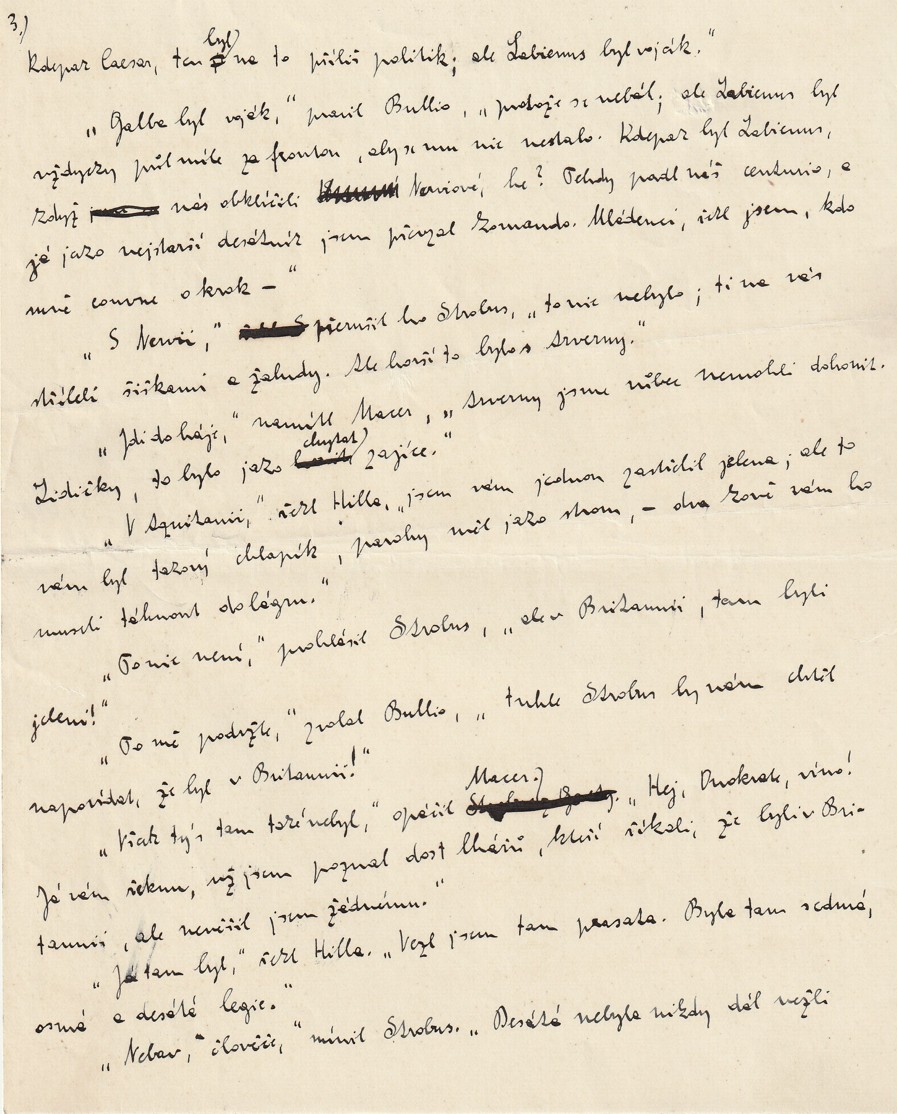 3.)
Kdepak Caesar, ten byl na to příliš politik; ale Labienus byl voják."
„Galba byl voják," pravil Bullio, „protože se nebál; ale Labienus byl
vždycky půl míle za frontou, aby se mu nic nestalo. Kdepak byl Labienus,
když nás obklíčili Nerviové, he? Tehdy padl náš centurio, a
já jako nejstarší desátník jsem převzal komando. Mládenci, řekl jsem, kdo
mně couvne o krok —"
„S Nervii," přerušil ho Strobus, „to nic nebylo; ti na nás
stříleli šiškami a žaludy. Ale horší to bylo s Arverny."
„Jdi do háje," namítl Macer, „Arverny jsme vůbec nemohli dohonit.
Lidičky, to bylo jako chytat zajíce."
„V Aquitanii," řekl Hilla, „jsem vám jednou zastřelil jelena; ale to
vám byl takový chlapík, parohy měl jako strom, – dva koně vám ho
museli táhnout do lágru."
„To nic není," prohlásil Strobus, „ale v Britannii, tam byli
jeleni!"
„To mě podržte," zvolal Bullio, „tuhle Strobus by nám chtěl
napovídat, že byl v Britannii!"
„Však tys tam také nebyl," opáčil Macer. „Hej, Onokrate, víno!
Já vám řeknu, už jsem poznal dost lhářů, kteří říkali, že byli v Bri-
tannii, ale nevěřil jsem žádnému."
„Já tam byl," řekl Hilla. „Vezl jsem tam prasata. Byla tam sedmá,
osmá a desátá legie."
„Nebav," člověče," mínil Strobus. „Desátá nebyla nikdy dál nežli